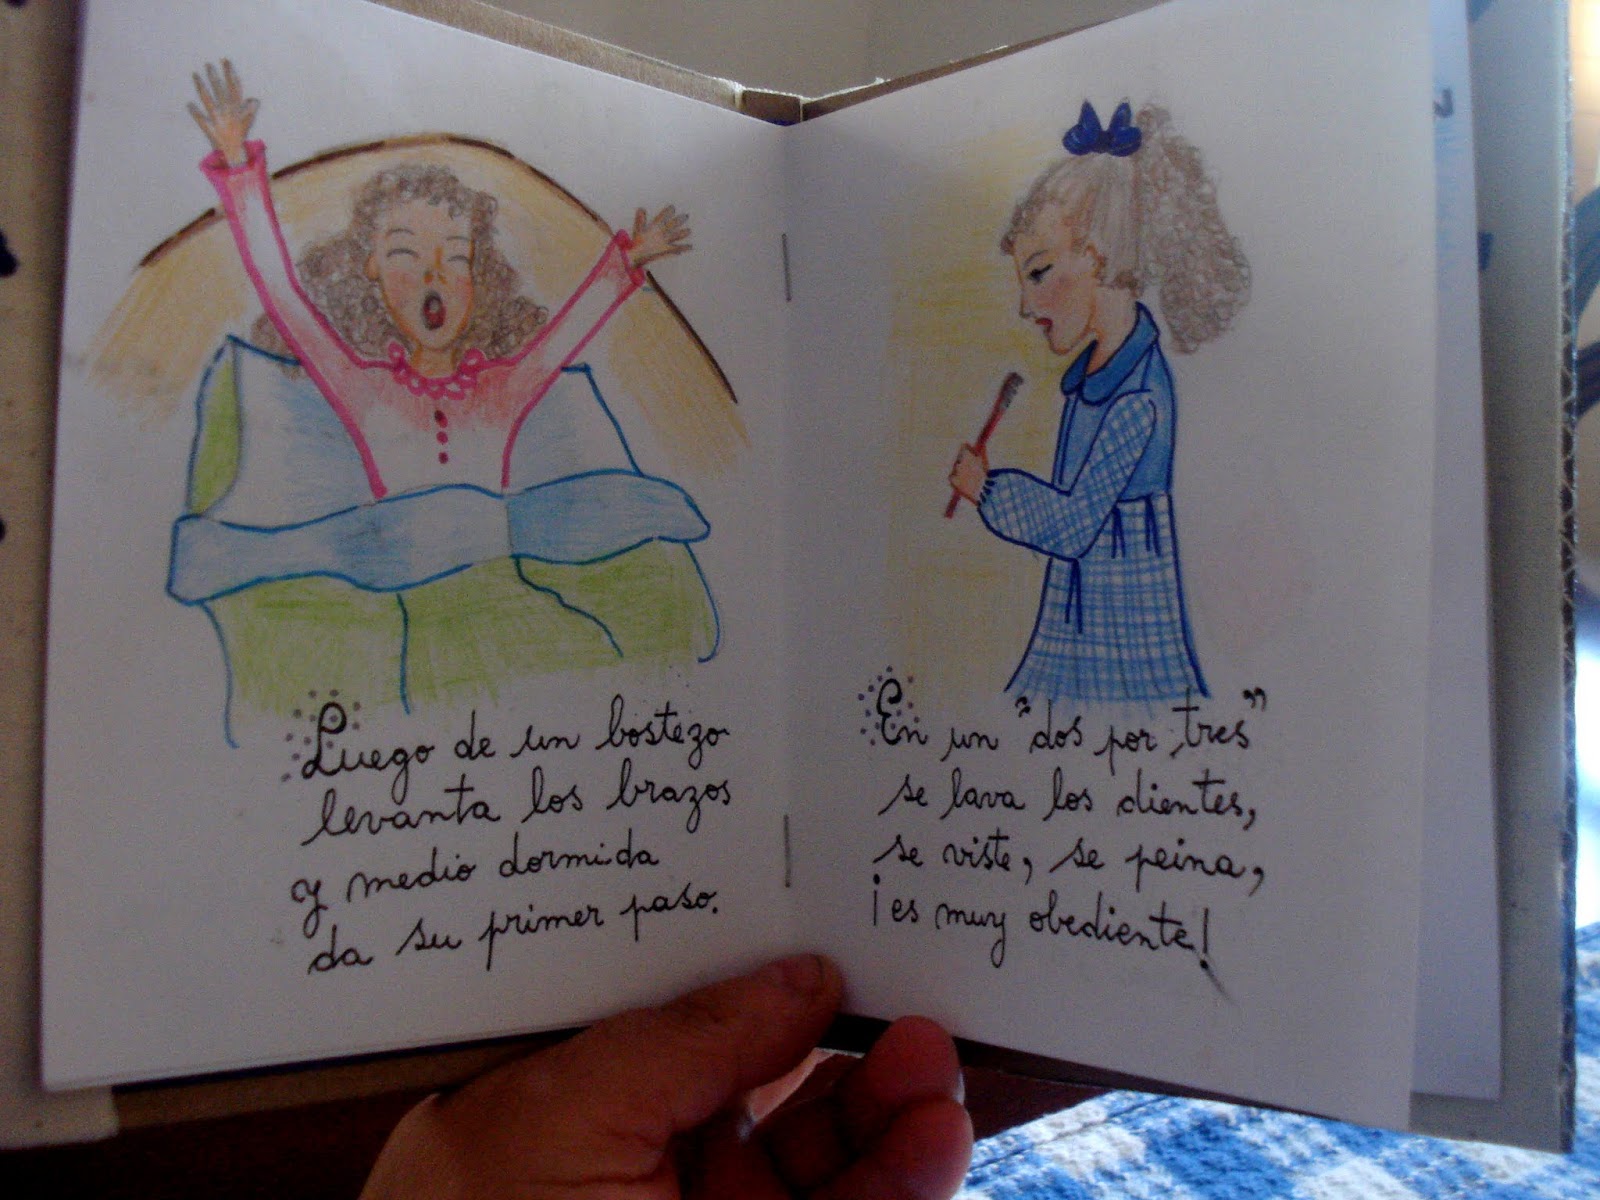 Luego de un bostezo
levanta los brazos
y medio dormida
da su primer paso.
En un "dos por tres"
se lava los dientes,
se viste, se peina,
¡es muy obediente!